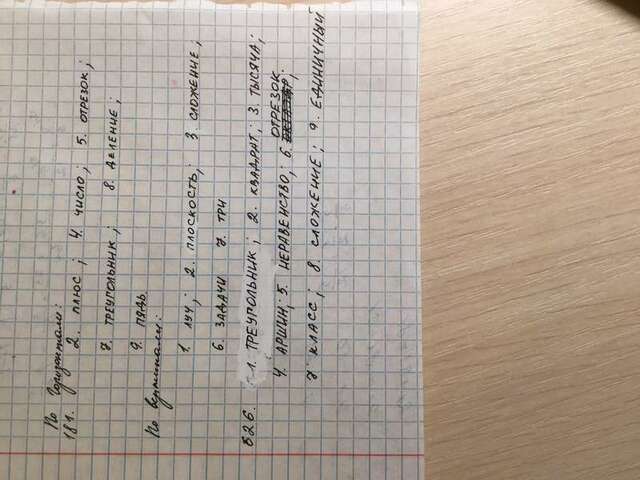 По горизонтали:
181. 2. ПЛЮС; 4. ЧИСЛО; 5. ОТРЕЗОК;
7. ТРЕУГОЛЬНИК; 8. ДЕЛЕНИЕ;
9. ПЯДЬ.
По вертикали:
1. ЛУЧ; 2. ПЛОСКОСТЬ; 3. СЛОЖЕНИЕ;
6. ЗАДАЧИ 7. ТРИ
826. 1. ТРЕУГОЛЬНИК; 2. КВАДРАТ; 3. ТЫСЯЧА;
4. АРШИН; 5. НЕРАВЕНСТВО; 6. ОТРЕЗОК;
7. КЛАСС; 8. СЛОЖЕНИЕ; 9. ЕДИНИЧНЫЙ